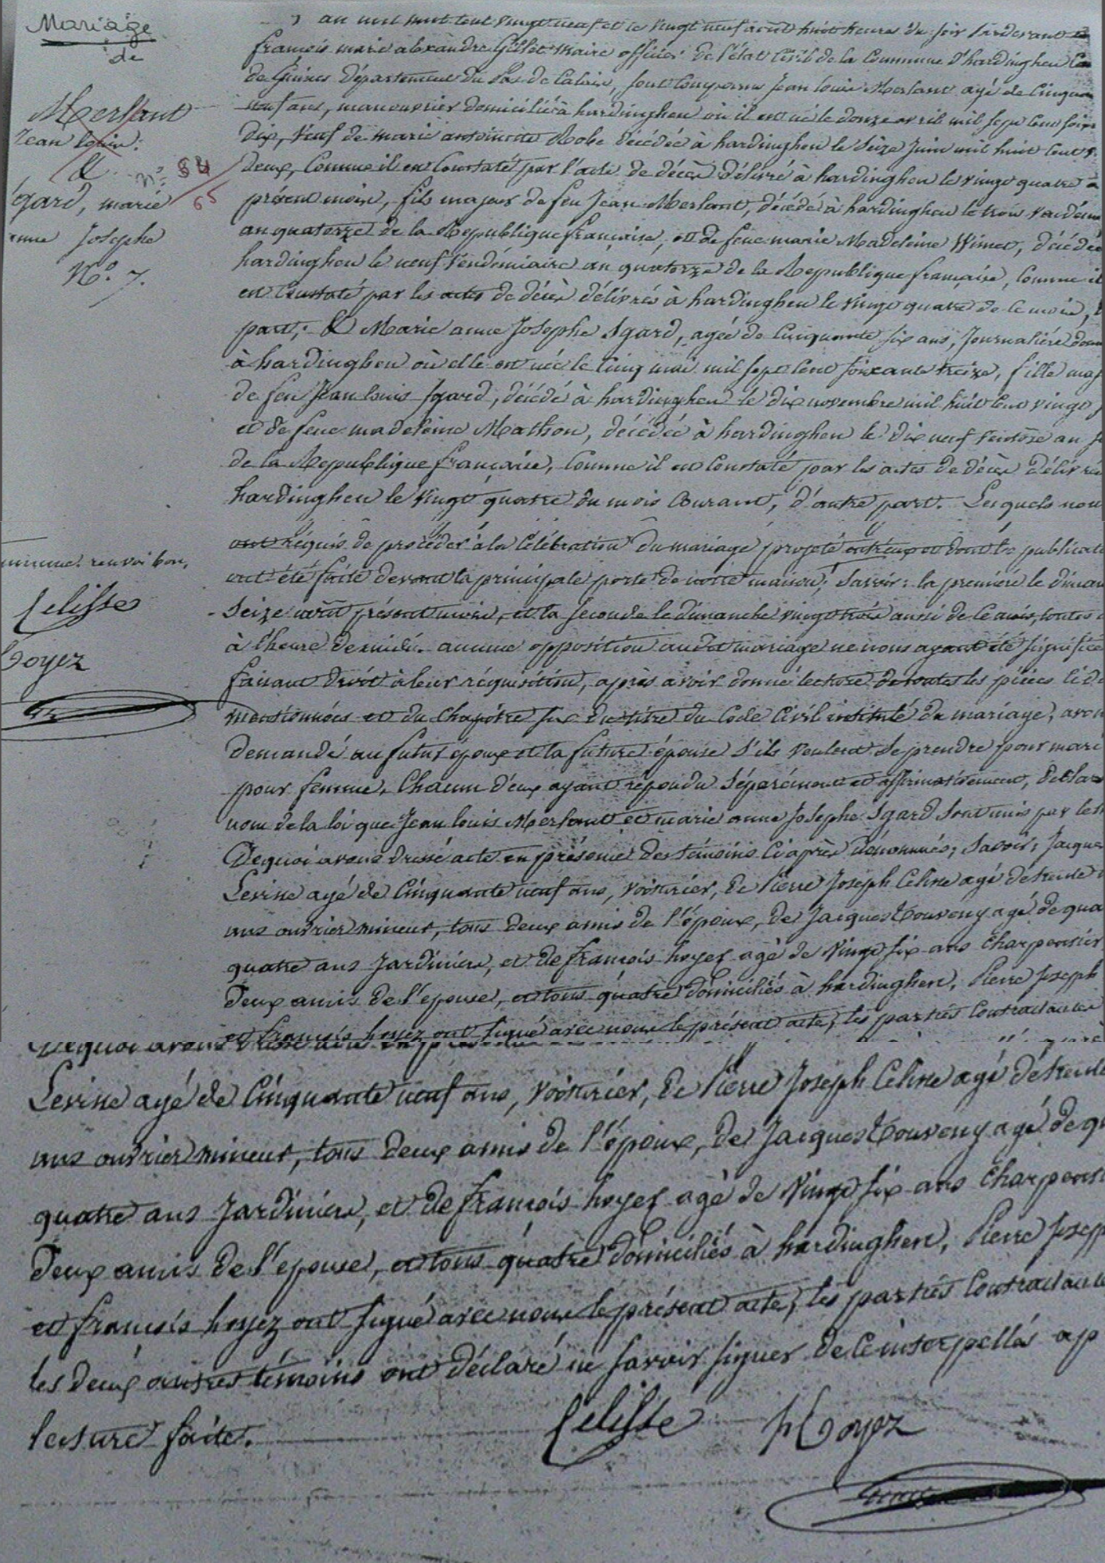 Mariage
de
Merlant
Jean louis.
&
n° 84
65
gard, marie
anne Josephe
N°. 7.
renvoi bon,
Celisse
hoyez
an mil huit cent vingt neuf et le vingt neuf août huit heures du soir pardevant
françois marie alexandre Gillet maire officier de l'état civil de la Commune d'hardinghen
de Guines département du Pas de Calais, sont comparus Jean louis Merlant agé de cinquante
neuf ans, manouvrier domicilié à hardinghen où il est né le douze avril mil sept cent soixante
dix, veuf de marie antoinette Robe décédée à hardinghen le seize juin mil huit cent
deux, comme il est constaté par l'acte de décès délivré à hardinghen le vingt quatre
présent mois, fils majeur de feu Jean Merlant, décédé à hardinghen le trois vendém
an quatorze de la République française, et de feue marie Madeleine Wimet, décédée
hardinghen le neuf vendemiaire an quatorze de la République française, comme il
est constaté par les actes de décès délivrés à hardinghen le vingt quatre de ce mois,
part; & Marie anne Josephe Sgard, agée de cinquante six ans, Journalière dom
à hardinghen où elle est née le cinq mai mil sept cent soixante treize, fille maj
de feu Jean louis Sgard, décédé à hardinghen le dix novembre mil huit cent vingt
et de feue madeleine Mathon, décédée à hardinghen le dix neuf ventôse an
de la République française, comme il est constaté par les actes de décès délivrés
hardinghen le vingt quatre du mois courant, d'autre part. Les quels nous
ont réquis de procéder à la célébration du mariage projeté entr'eux et dont les publicat
ont été faite devant la principale porte de notre maison, Savoir: la première le diman
seize août présent mois, et la seconde le dimanche vingt trois aussi de ce mois, toutes
à l'heure de midi. aucune opposition audit mariage ne nous ayant été signifiée
faisant droit à leur réquisition, après avoir donné lecture de toutes les pièces ci de
mentionnées et du chapitre six du titre du Code Civil intitulé du mariage, avons
demandé au futur époux et la future épouse s'ils veulent se prendre pour mari
pour femme, chacun d'eux ayant répondu séparément et affirmativement, déclar
nom de la loi que Jean louis Merlant et marie anne Josephe Sgard sont unis par le m
De quoi avons dressé acte en présence des témoins ci après dénommés; Savoir: Jacques
Levine agé de cinquante neuf ans, voiturier, de Pierre Joseph Celisse agé de trente
ans ouvrier mineur, tous deux amis de l'époux, de Jacques Touveny agé de qua
quatre ans jardinier, et de françois hoyez agé de vingt six ans charpentier
deux amis de l'épouse, et tous quatre domiciliés à hardinghen, Pierre Joseph
et françois hoyez ont signé avec nous le présent acte, les parties contractantes
De quoi avons
Levine agé de cinquante neuf ans, voiturier, de Pierre Joseph Celisse agé de trente
ans ouvrier mineur, tous deux amis de l'époux, de Jacques Touveny agé de q
quatre ans jardinier, et de françois hoyez agé de vingt six ans charpent
deux amis de l'épouse, et tous quatre domiciliés à hardinghen, Pierre Josep
et françois hoyez ont signé avec nous le présent acte, les parties contractante
les deux autres témoins ont déclaré ne savoir signer de ce interpellés ap
lecture faite.
Celisse hoyez